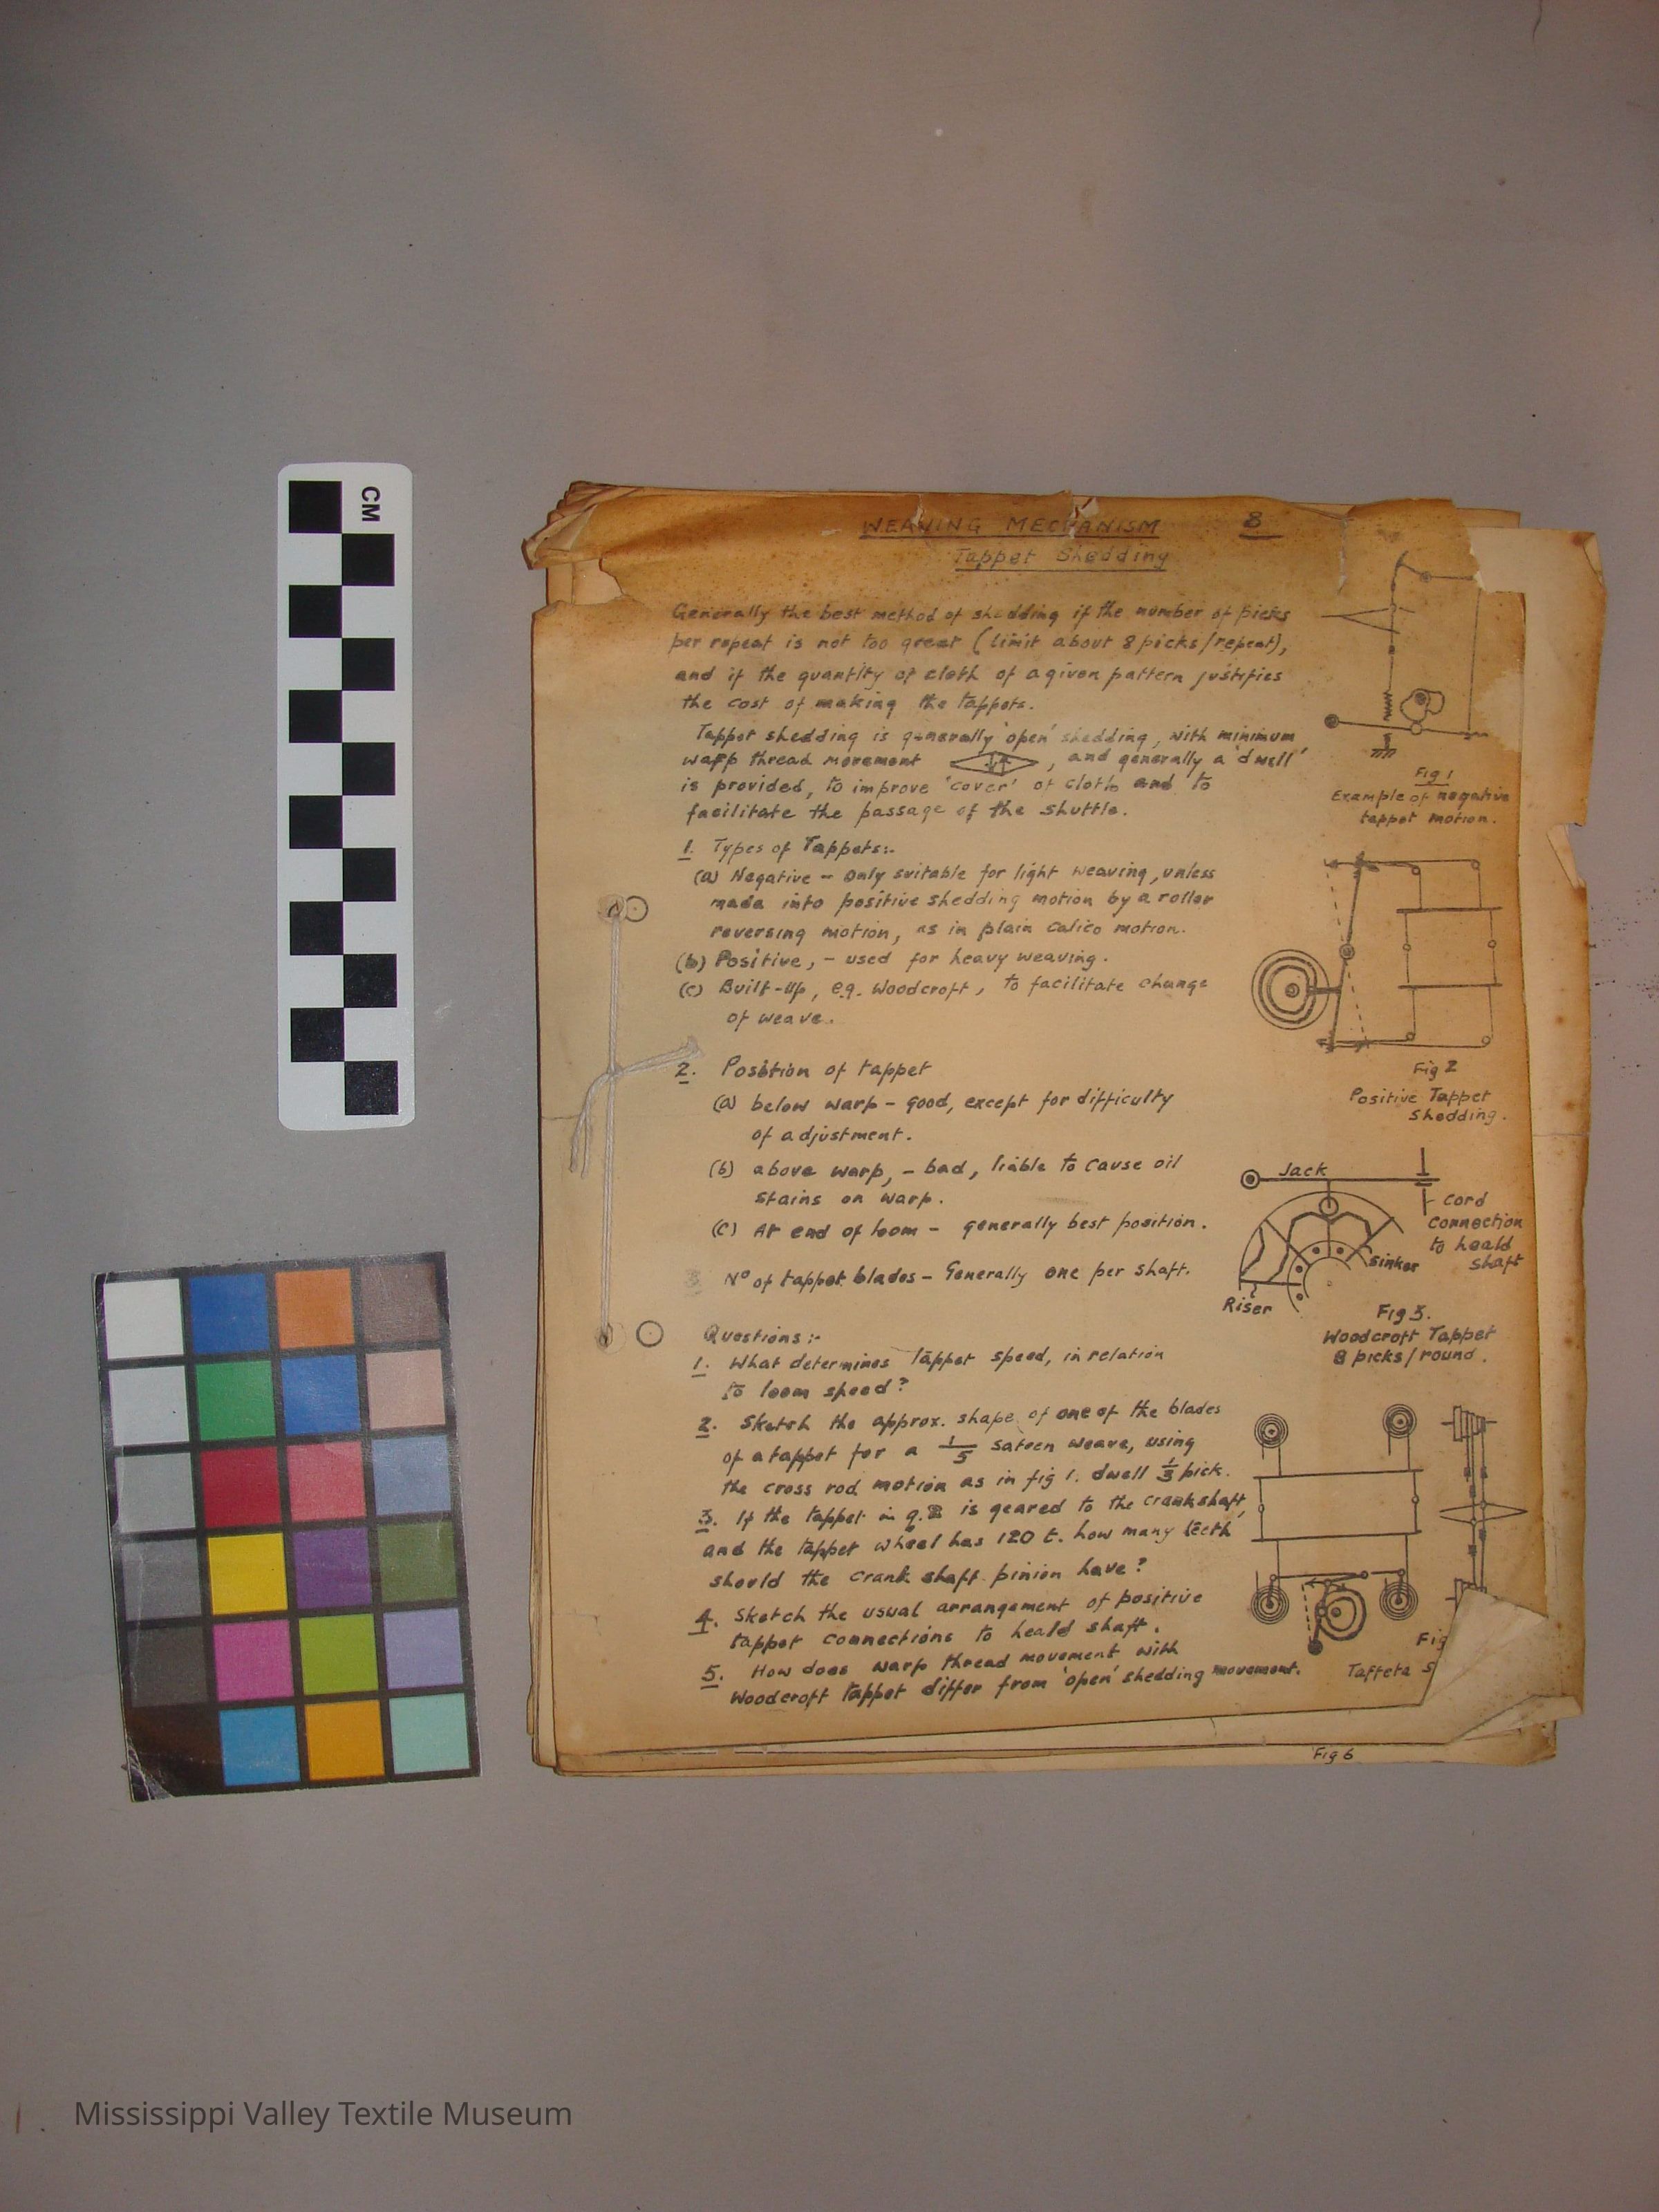 CM
WEAVING MECHANISM 8
Tappet Shedding
Generally the best method of shedding if the number of picks
per repeat is not too great (limit about 8 picks/repeat),
and if the quantity of cloth of a given pattern justifies
the cost of making the tappets.
Tappet shedding is generally 'open' shedding, with minimum
warp thread movement , and generally a 'dwell'
is provided, to improve 'cover' of cloth and to
facilitate the passage of the shuttle.
1. Types of Tappets:-
(a) Negative - only suitable for light weaving, unless
made into positive shedding motion by a roller
reversing motion, as in plain calico motion.
(b) Positive, - used for heavy weaving.
(c) Built-up, e.g. Woodcroft, to facilitate change
of weave.
2. Position of tappet
(a) below warp - good, except for difficulty
of adjustment.
(b) above warp, - bad, liable to cause oil
stains on warp.
(c) At end of loom - generally best position.
3 No of tappet blades - Generally one per shaft.
Questions:-
1. What determines tappet speed, in relation
to loom speed?
2. Sketch the approx. shape of one of the blades
of a tappet for a 1/5 sateen weave, using
the cross rod motion as in fig 1. dwell 1/3 pick.
3. If the tappet in q.2 is geared to the crankshaft,
and the tappet wheel has 120 t. how many teeth
should the crank shaft pinion have?
4. Sketch the usual arrangement of positive
tappet connections to heald shaft.
5. How does warp thread movement with
Woodcroft tappet differ from 'open' shedding movement.
Fig 1
Example of negative
tappet motion.
Fig 2
Positive Tappet
Shedding.
Jack
Cord
connection
to heald
shaft
Sinker
Riser
Fig 3.
Woodcroft Tappet
8 picks/round.
Fig
Taffeta S
Fig 6
Mississippi Valley Textile Museum